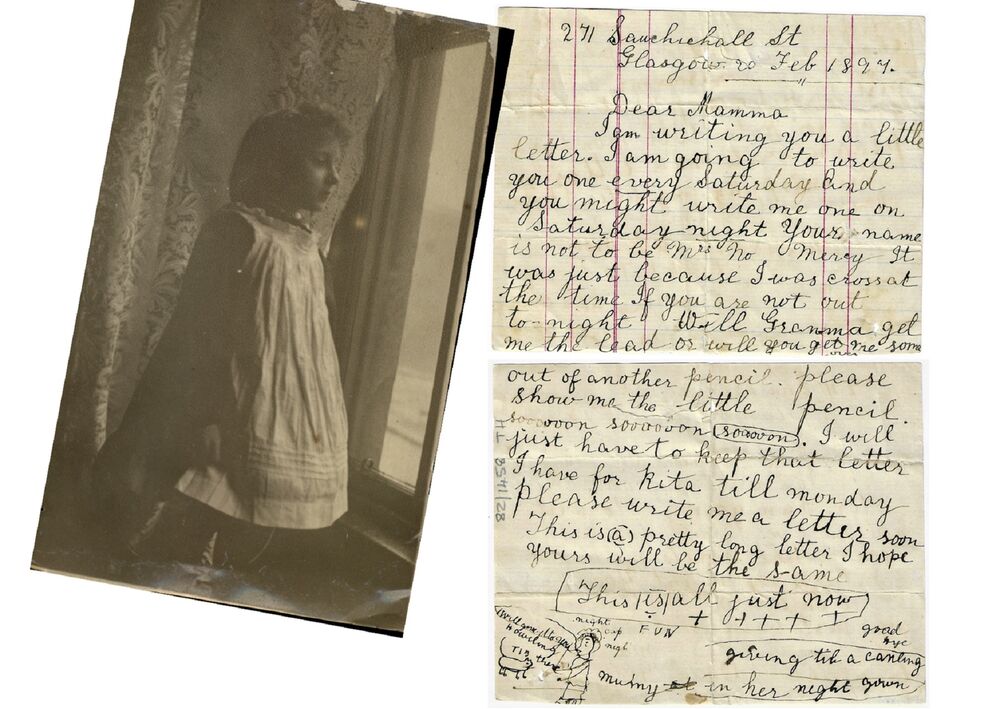 271 Sauchiehall St
Glasgow 20 Feb 1897.
Dear Mamma
I am writing you a little
letter. I am going to write
you one every Saturday and
you might write me one on
Saturday night Your name
is not to be Mrs No Mercy It
was just because I was cross at
the time If you are not out
to-night Will Granma get
me the lead or will you get me some
out of another pencil. please
show me the little pencil.
soooooon soooooon soooooon. I will
just have to keep that letter
I have for Rita till monday
please write me a letter soon
This is (a) pretty long letter I hope
yours will be the same
This is all just now
FUN + + + + +
good
bye
night
cap
giving tib a caning
mumy in her night gown
HL 8541/28